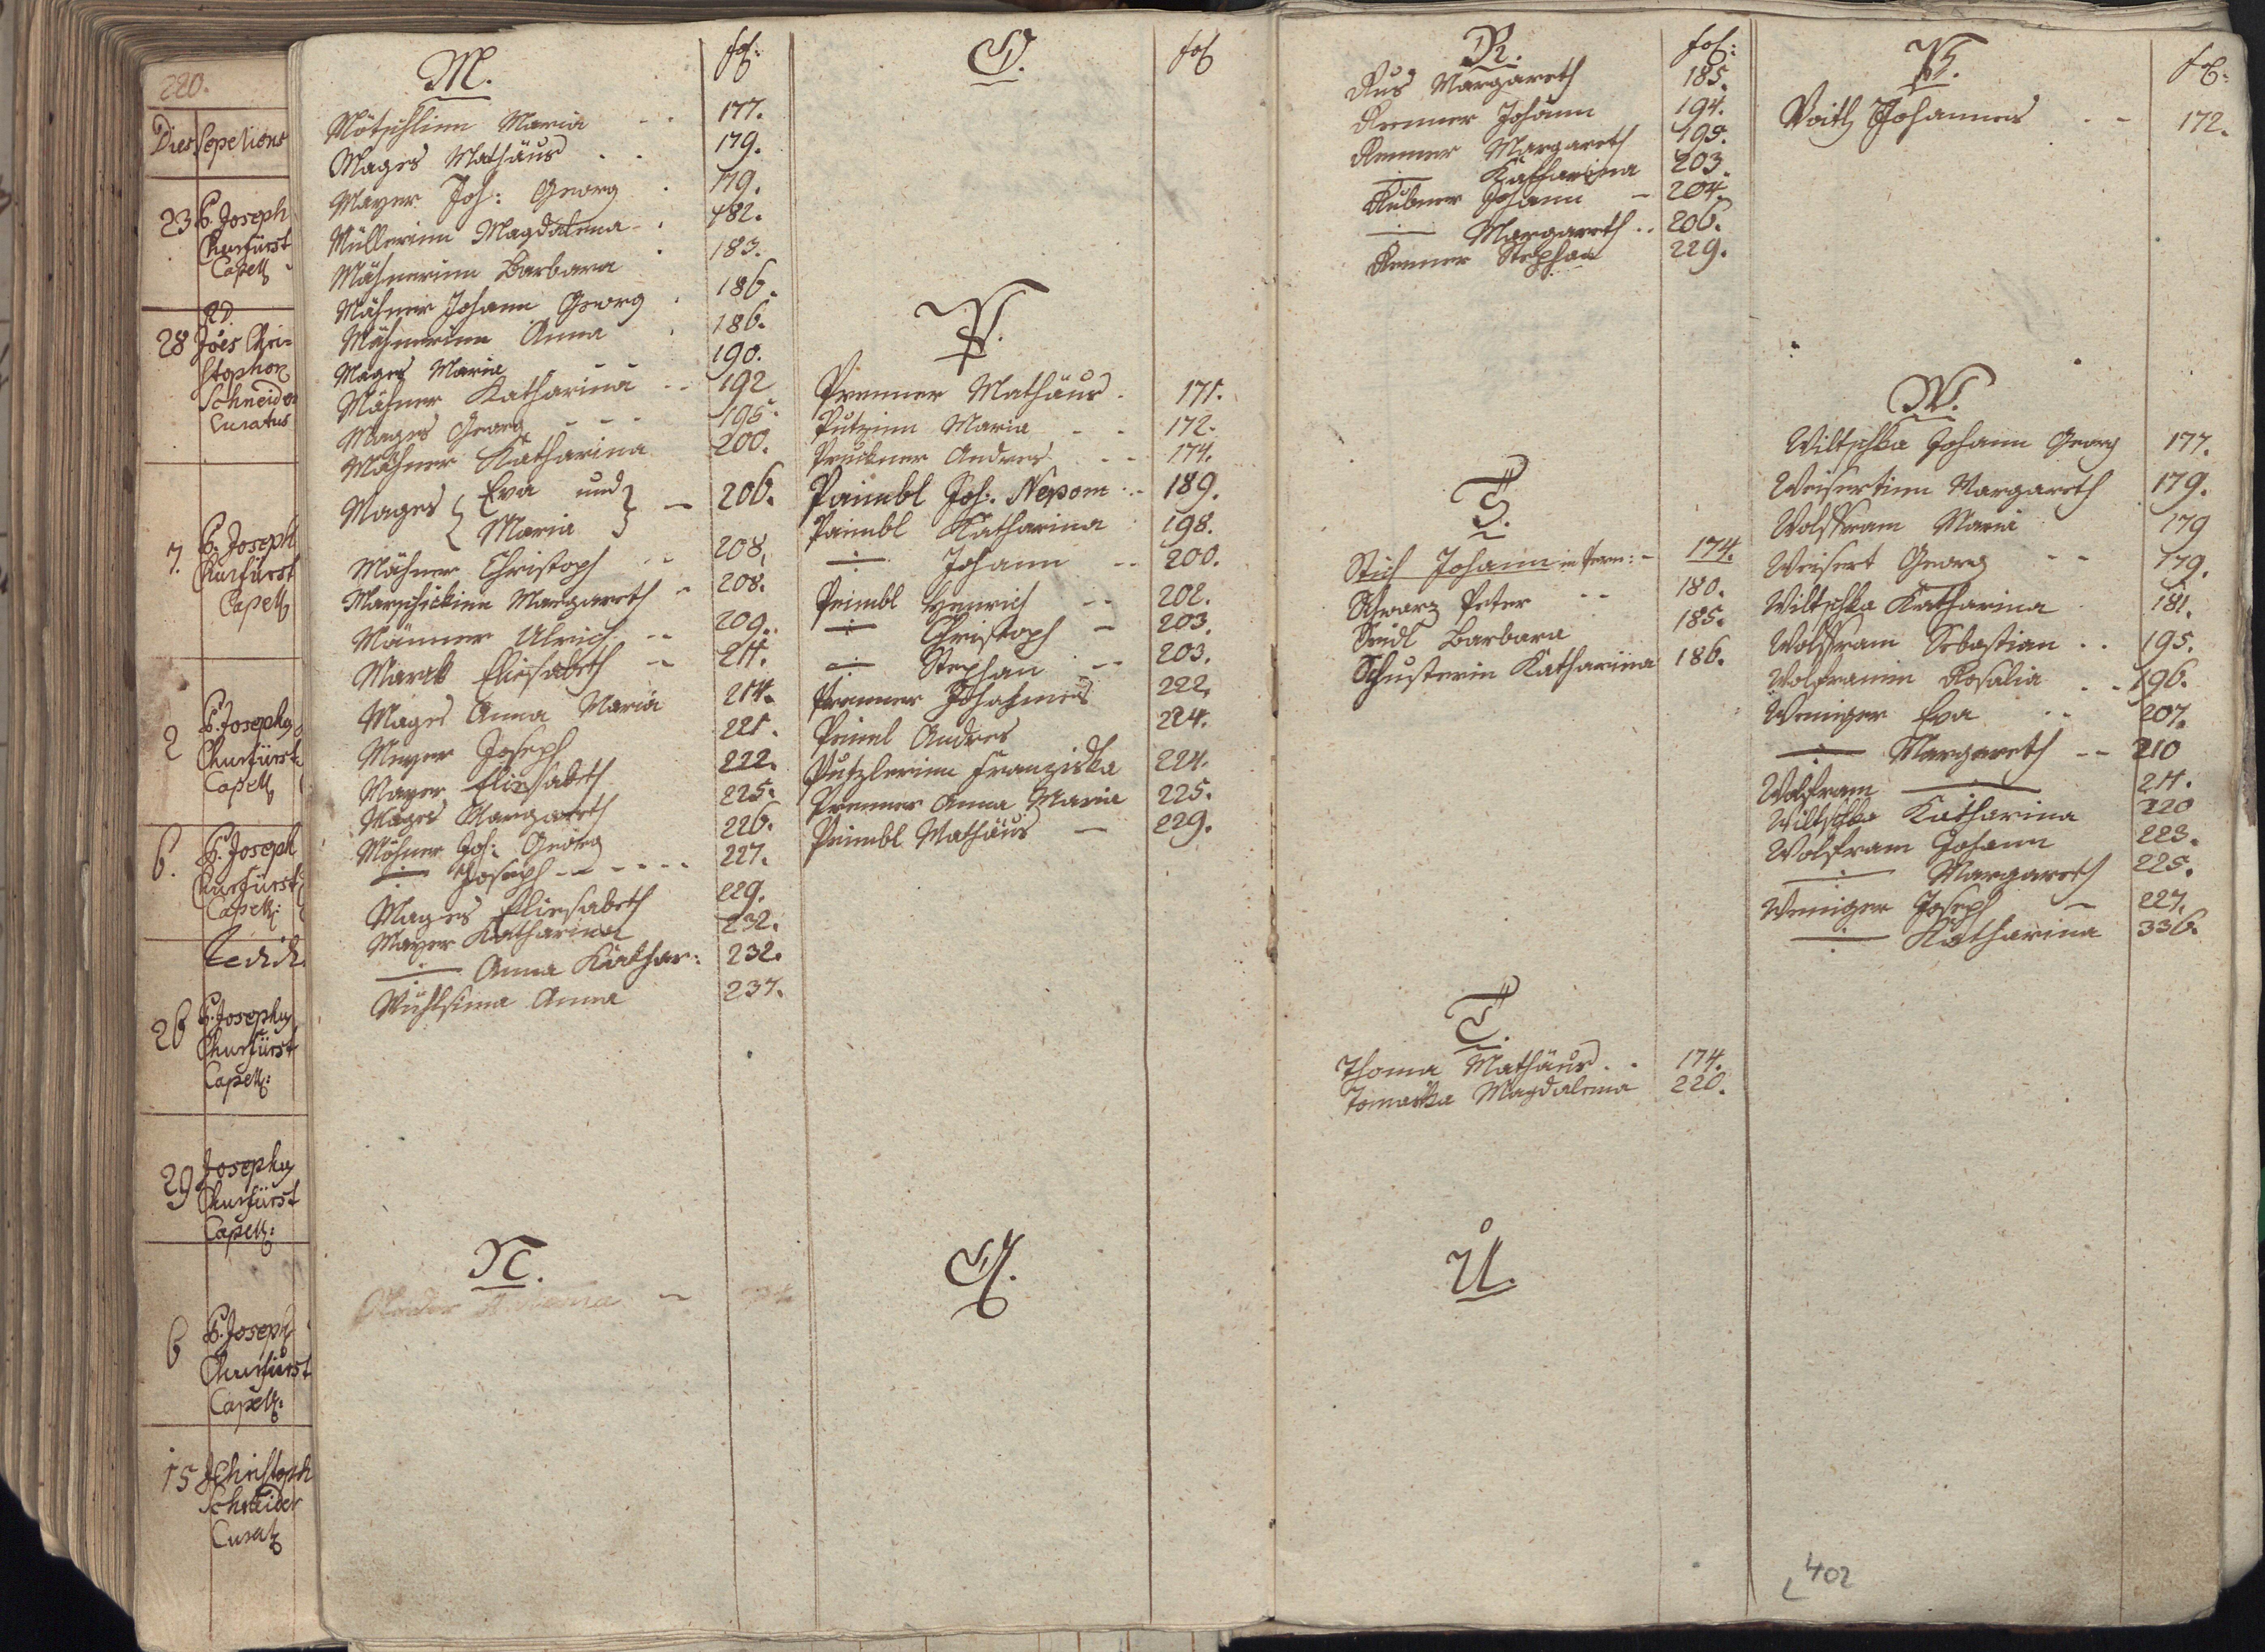 220.
Dies Sepelions
23 P. Joseph
Churfürst
Capell
RD.
28 Joes Chri=
stophor
Schneider
Curatus
7. P. Joseph
Churfürst
Capell
2 P. Josephy
Churfürst
Capell
6. P. Joseph
Churfürst
Capell:
26 P. Josephy
Churfürst
Capell:
29 Josephy
Churfürst
Capell:
6 P. Joseph
Churfürst
Capell:
15 JChristoph
Schneider
Curat
M. fol:
Mötschlinn Maria - - 177.
Mages Mathäus . . 179.
Mayer Joh: Georg . 179.
Müllerinn Magdalena - . 182.
Mähnerinn Barbara . 183.
Mähner Johann Georg . 186.
Mähnerinn Anna . 186.
Mages Maria - - 190.
Mähner Katharina - - 192
Mages Georg - - - 195.
Mähner Katharina 200.
Mages { Eva und } - 206.
Maria
Mähner Christoph - - 208.
Marschickinn Margareth - 208.
Männer Ulrich - - 209.
Marek Eliesabeth - 211.
Mages Anna Maria 214.
Meyer Joseph 221.
Mayer Eliesabeth 222.
Mages Margareth 225.
Mähner Joh: Georg 226.
-:- Joseph - - - - - 227.
Mages Eliesabeth 229.
Mayer Katharina 232.
-:- Anna Kathar: 232.
Anna 237.
N.
O. fol
P.
Prenner Mathäus . 171.
Putzinn Maria - - 172.
Pruckner Andres - - 174.
Paimbl Joh: Nepom: - 189.
Paimbl Katharina : 198.
-:- Johann - - 200.
Peimbl Henrich - - 202.
-:- Christoph - 203.
-:- Stephan - - 203.
Prenner Johannes 222.
Peiml Andres 224.
Putzlerinn Franziska 224.
Prenner Anna Maria 225.
Peimbl Mathäus - 229.
Q.
R. fol:
Rus Margareth 185.
Renner Johann 194.
Renner Margareth 195.
-:- Katharina 203.
Rubner Johann - 204.
-:- Margareth . . 206.
Renner Stephan 229.
S.
Stich Johann in Fern: - 174.
Schwarz Peter - - 180.
Seidl Barbara 185.
Schusterin Katharina 186.
T.
Thoma Mathäus . . 174.
Tomaska Magdalena 220.
U.
V. fol:
Voith Johannes . - 172.
W.
Wiltschka Johann Georg 177.
Weisertinn Margareth 179.
Wolffram Maria 179
Weisert Georg - - 179.
Wiltschka Katharina 181.
Wolffram Sebastian . . 195.
Wolframin Rosalia . - 196.
Weniger Eva - - 207.
-:- Margareth - - 210
Wolfram -:- 211.
Wiltschka Katharina 220
Wolfram Johann 223.
-:- Margareth 225.
Weniger Joseph - 227.
-:- Katharina 336.
402